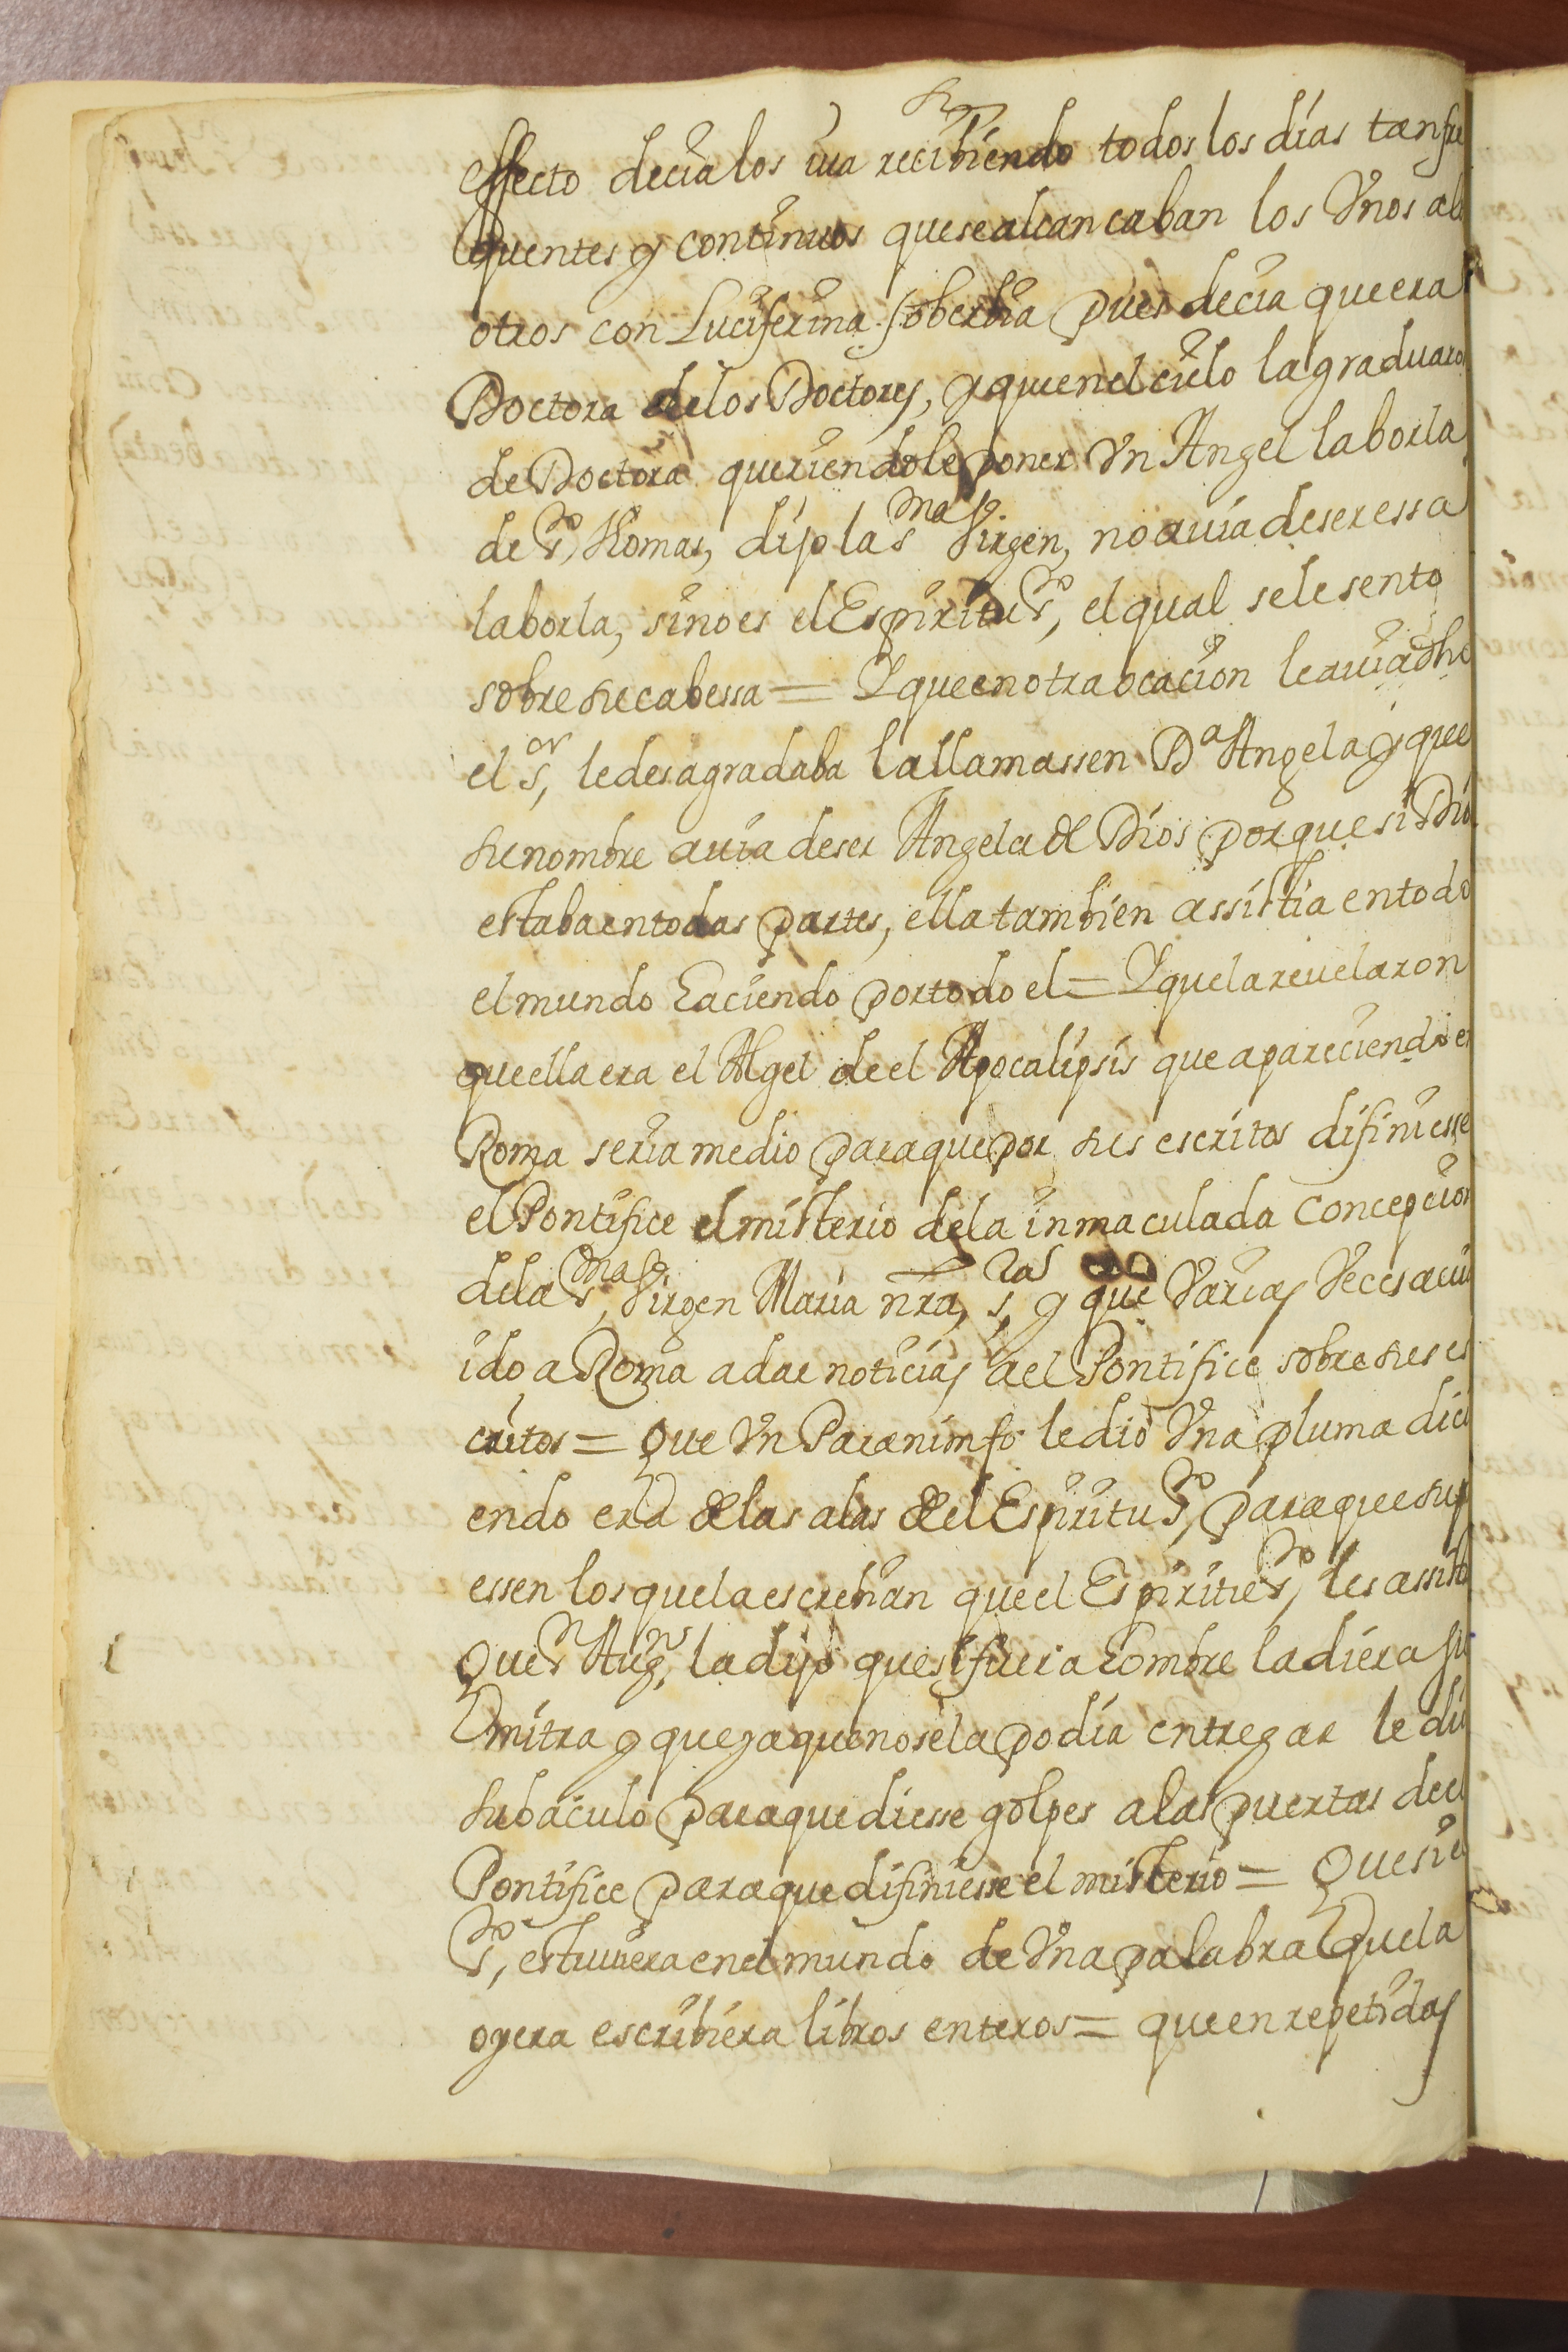 effecto decia los iua recibiendo todos los dias tan fre
quentes y continuos que se alcancaban los Vnos a lo
otros con Luciferina soberbia pues decia que era
Doctora de los Doctores, y que en el cielo la graduaro
de Doctora queriendole poner Vn Angel la borla
de Sto, Thomas, dijo la Sma Virgen, no auia de ser essa
la borla, sino es el Espiritu Sto, el qual se le sento
sobre su cabessa = Y que en otra ocacion le auia dho
el Sor, le desagradaba la llamassen Da Angela y que
su nombre auia de ser Angela de Dios porque si Dio
estaba en todas partes, ella tambien assistia en todo
el mundo haciendo por todo el = Y que la reuelaron
que ella era el Algel de el Apocalipsis que apareciendo e
Roma seria medio para que por sus escritos difiniesse
el Pontifice el misterio de la inmaculada concepcion
de la Sma Virgen Maria nra, sra, y que Varias Veces auia
ido a Roma a dar noticias a el Pontifice sobre sus es
critos = Que Vn Paraninfo le dio Vna pluma dici
endo era de las alas de el Espiritu Sto, para que sup
essen los que la escrebian que el Espiritu Sto, les assisti
Que Sn Augn, la dijo que si fuera hombre la diera su
mitra y que ya que no se la podia entregar le dio
su baculo para que diesse golpes a las puertas de el
Pontifice para que difiniesse el misterio = Que si el
Sto, estuuiera en el mundo de Vna palabra que la
oyera escribiera libros enteros = que en repetidas